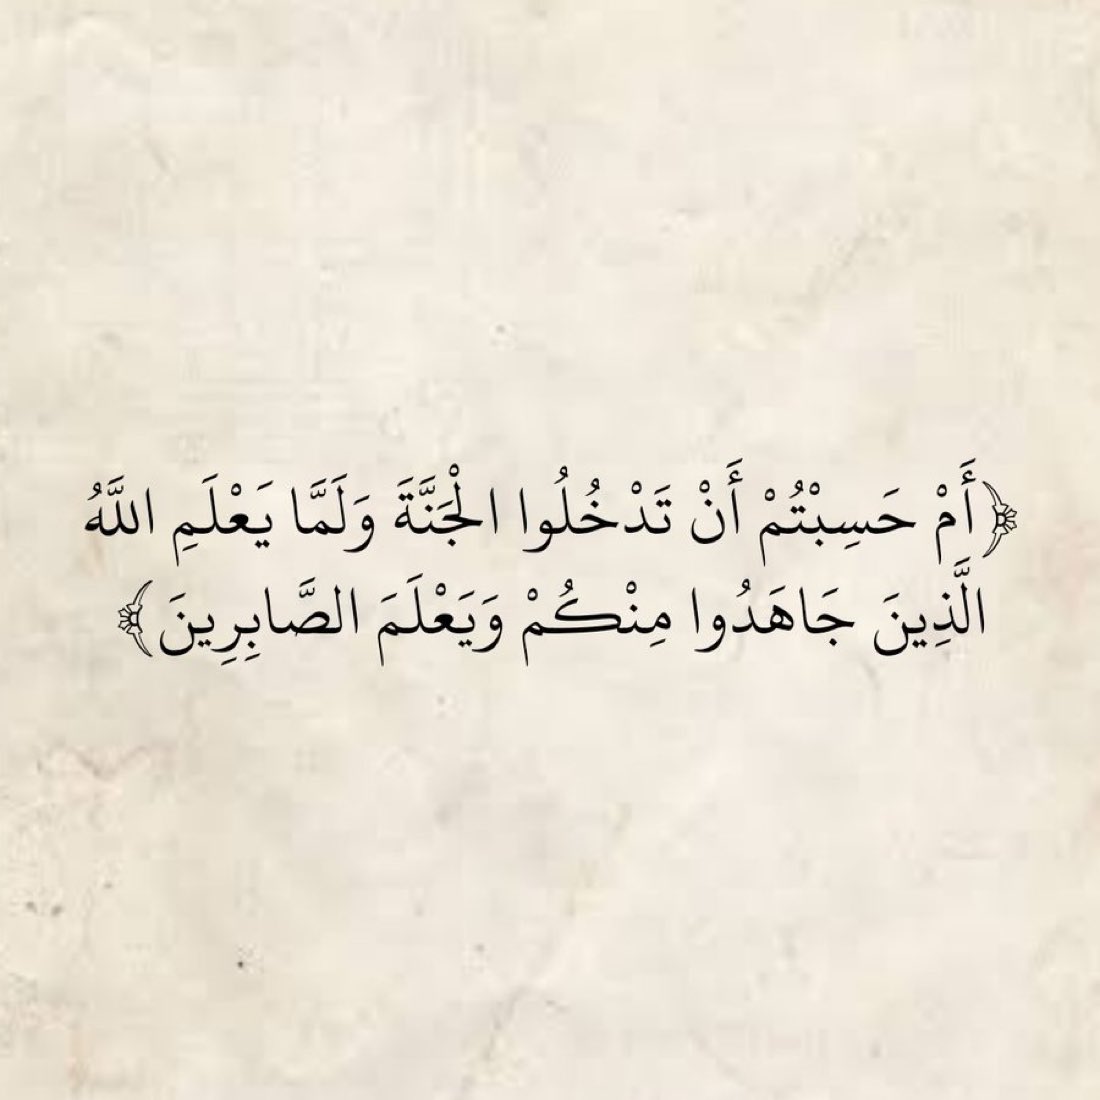 ﴿أَمْ حَسِبْتُمْ أَنْ تَدْخُلُوا الْجَنَّةَ وَلَمَّا يَعْلَمِ اللَّهُ
الَّذِينَ جَاهَدُوا مِنْكُمْ وَيَعْلَمَ الصَّابِرِينَ﴾